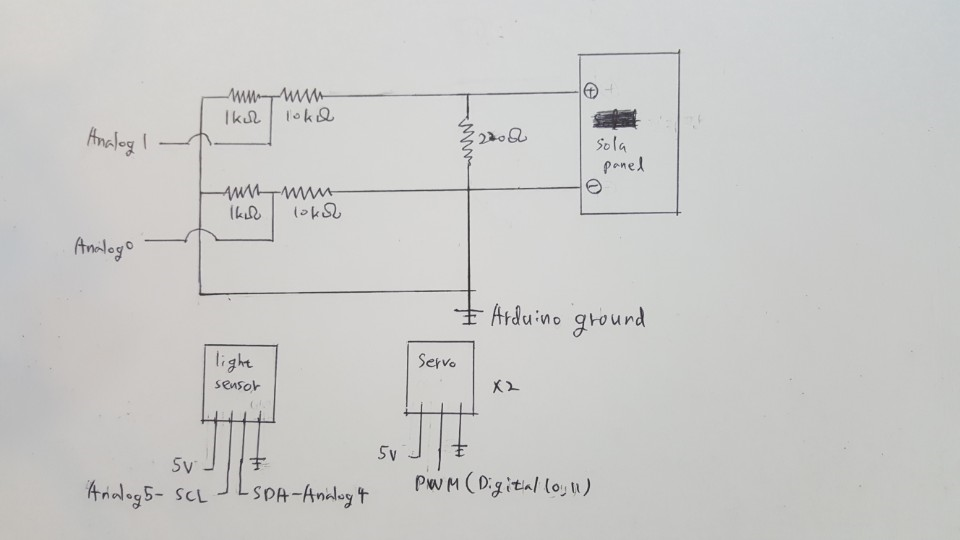 1kΩ 10kΩ
Analog 1
220Ω
+
sola
panel
1kΩ 10kΩ
−
Analog0
Arduino ground
light
sensor
Servo
X2
5V
5V
Analog5- SCL
SDA-Analog4
PWM (Digital 10,11)